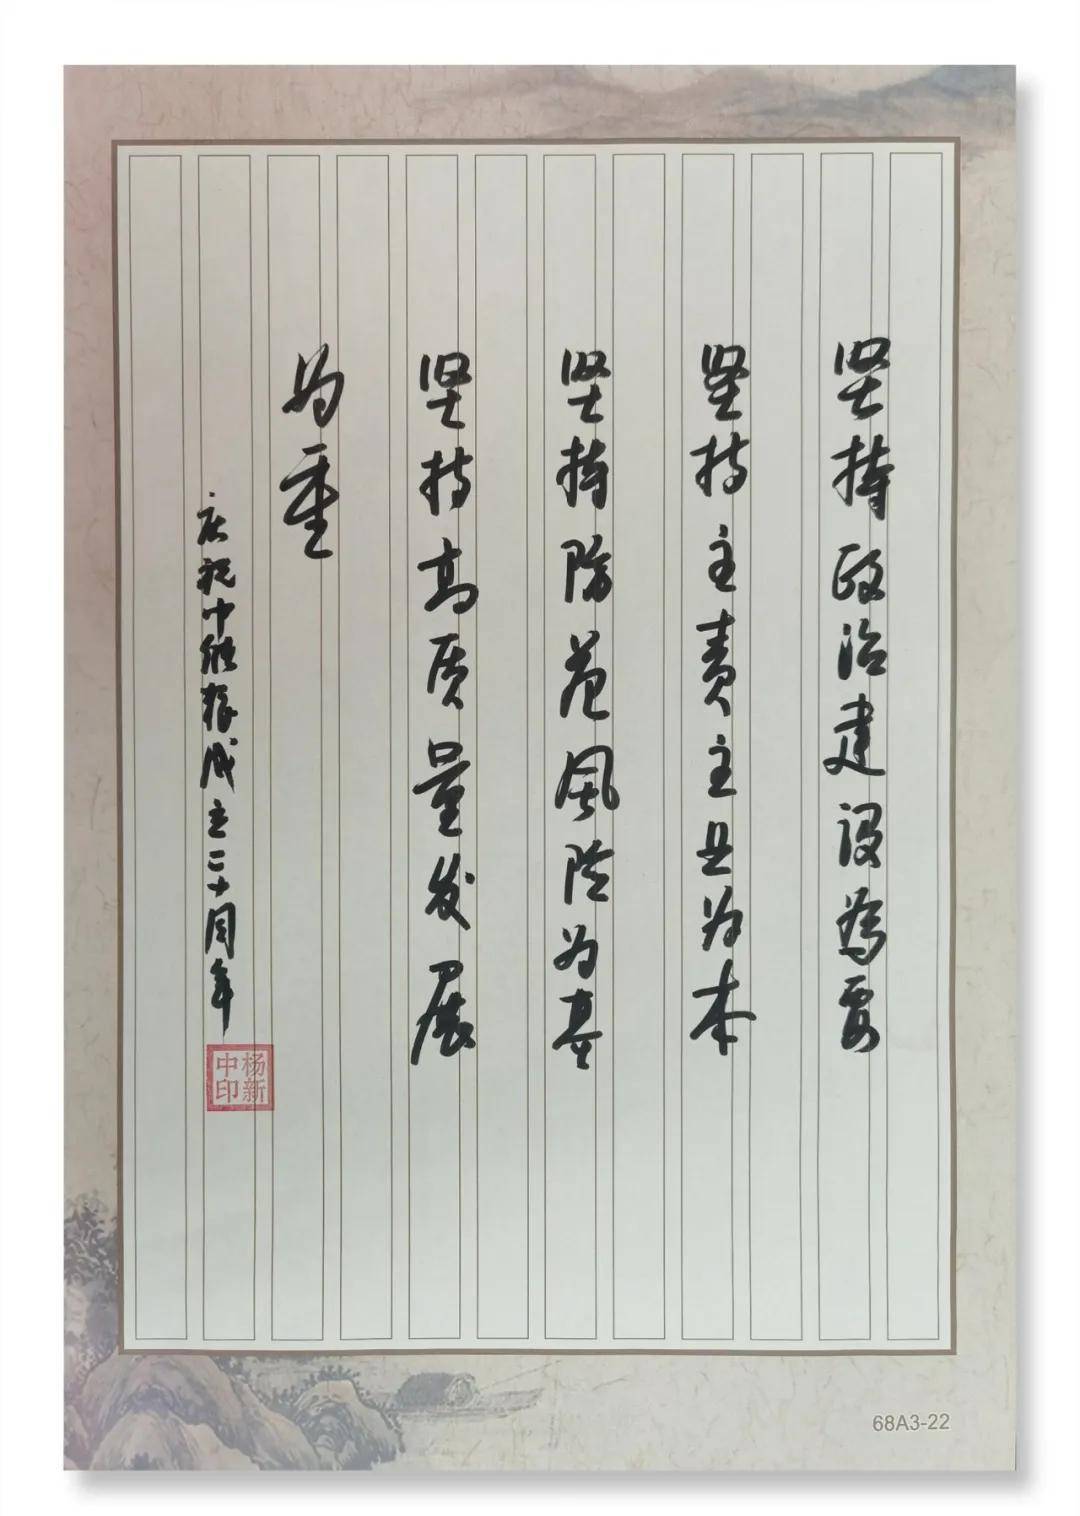 坚持政治建设為要
坚持主责主业为本
坚持防范風险为基
坚持高质量发展
为重
庆祝中能成立二十周年
杨新
中印
68A3-22